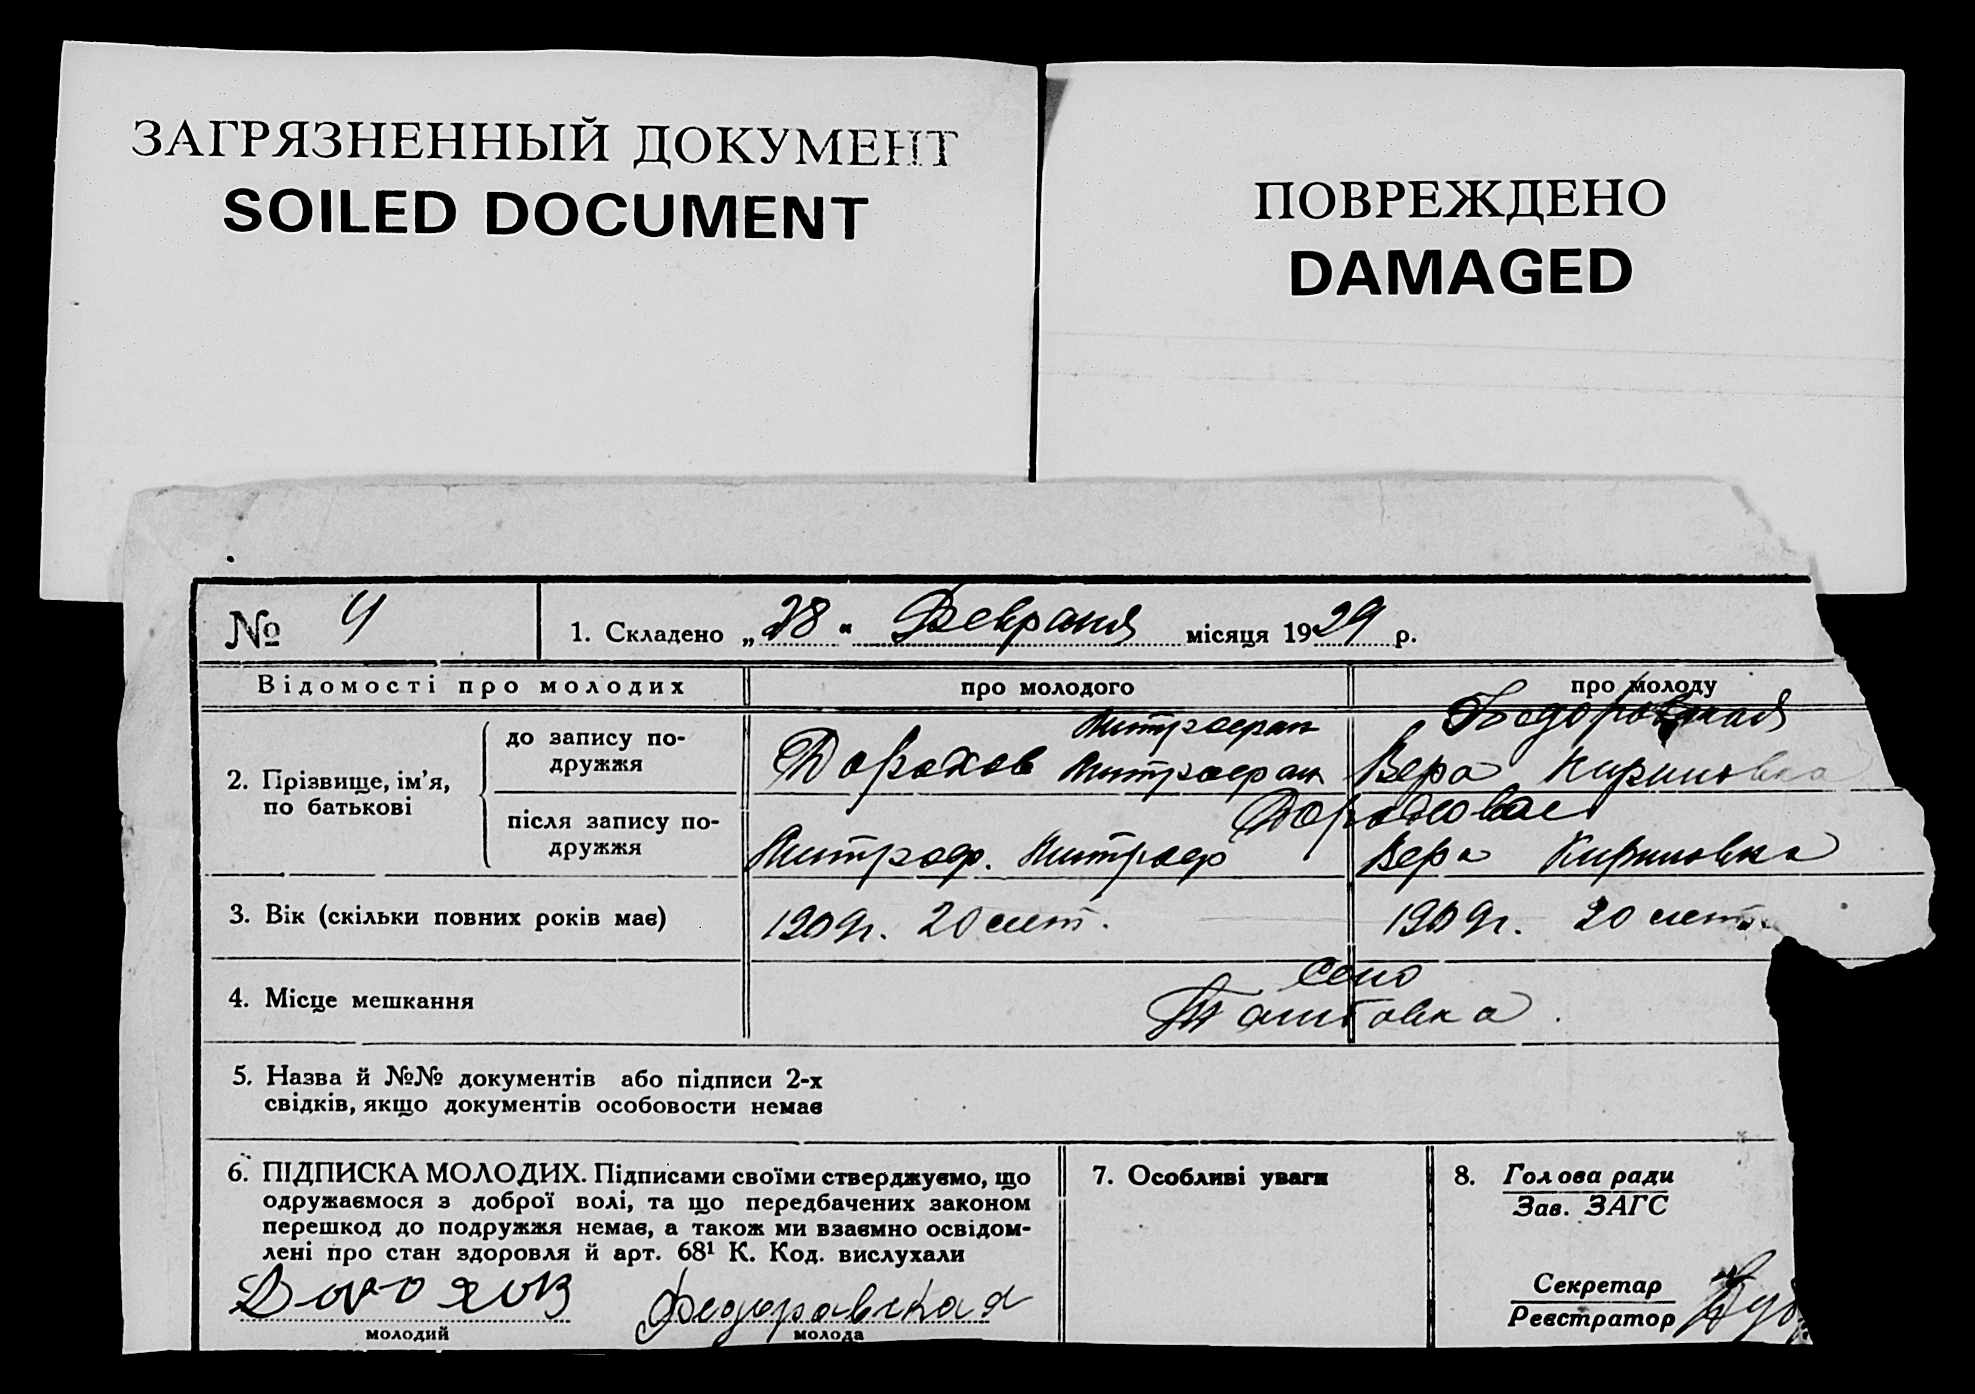 ЗАГРЯЗНЕННЫЙ ДОКУМЕНТ
SOILED DOCUMENT
ПОВРЕЖДЕНО
DAMAGED
№ 4
1. Складено „28“ Февраля місяця 1929 р.
Відомості про молодих
про молодого
про молоду
2. Прізвище, ім'я, по батькові
до запису по-
дружжя
Митрофан
Дорохов Митрофан
Федоровская
Вера Кириловна
після запису по-
дружжя
Митроф. Митроф
Дорохова
Вера Кириловна
3. Вік (скільки повних років має)
1909 г. 20 лет.
1909 г. 20 лет.
4. Місце мешкання
село
5. Назва й №№ документів або підписи 2-х
свідків, якщо документів особовости немає
6. ПІДПИСКА МОЛОДИХ. Підписами своїми стверджуємо, що
одружаємося з доброї волі, та що передбачених законом
перешкод до подружжя немає, а також ми взаємно освідом-
лені про стан здоровля й арт. 68¹ К. Код. вислухали
Дорохов
молодий
Федоравская
молода
7. Особливі уваги
8. Голова ради
Зав. ЗАГС
Секретар
Реєстратор